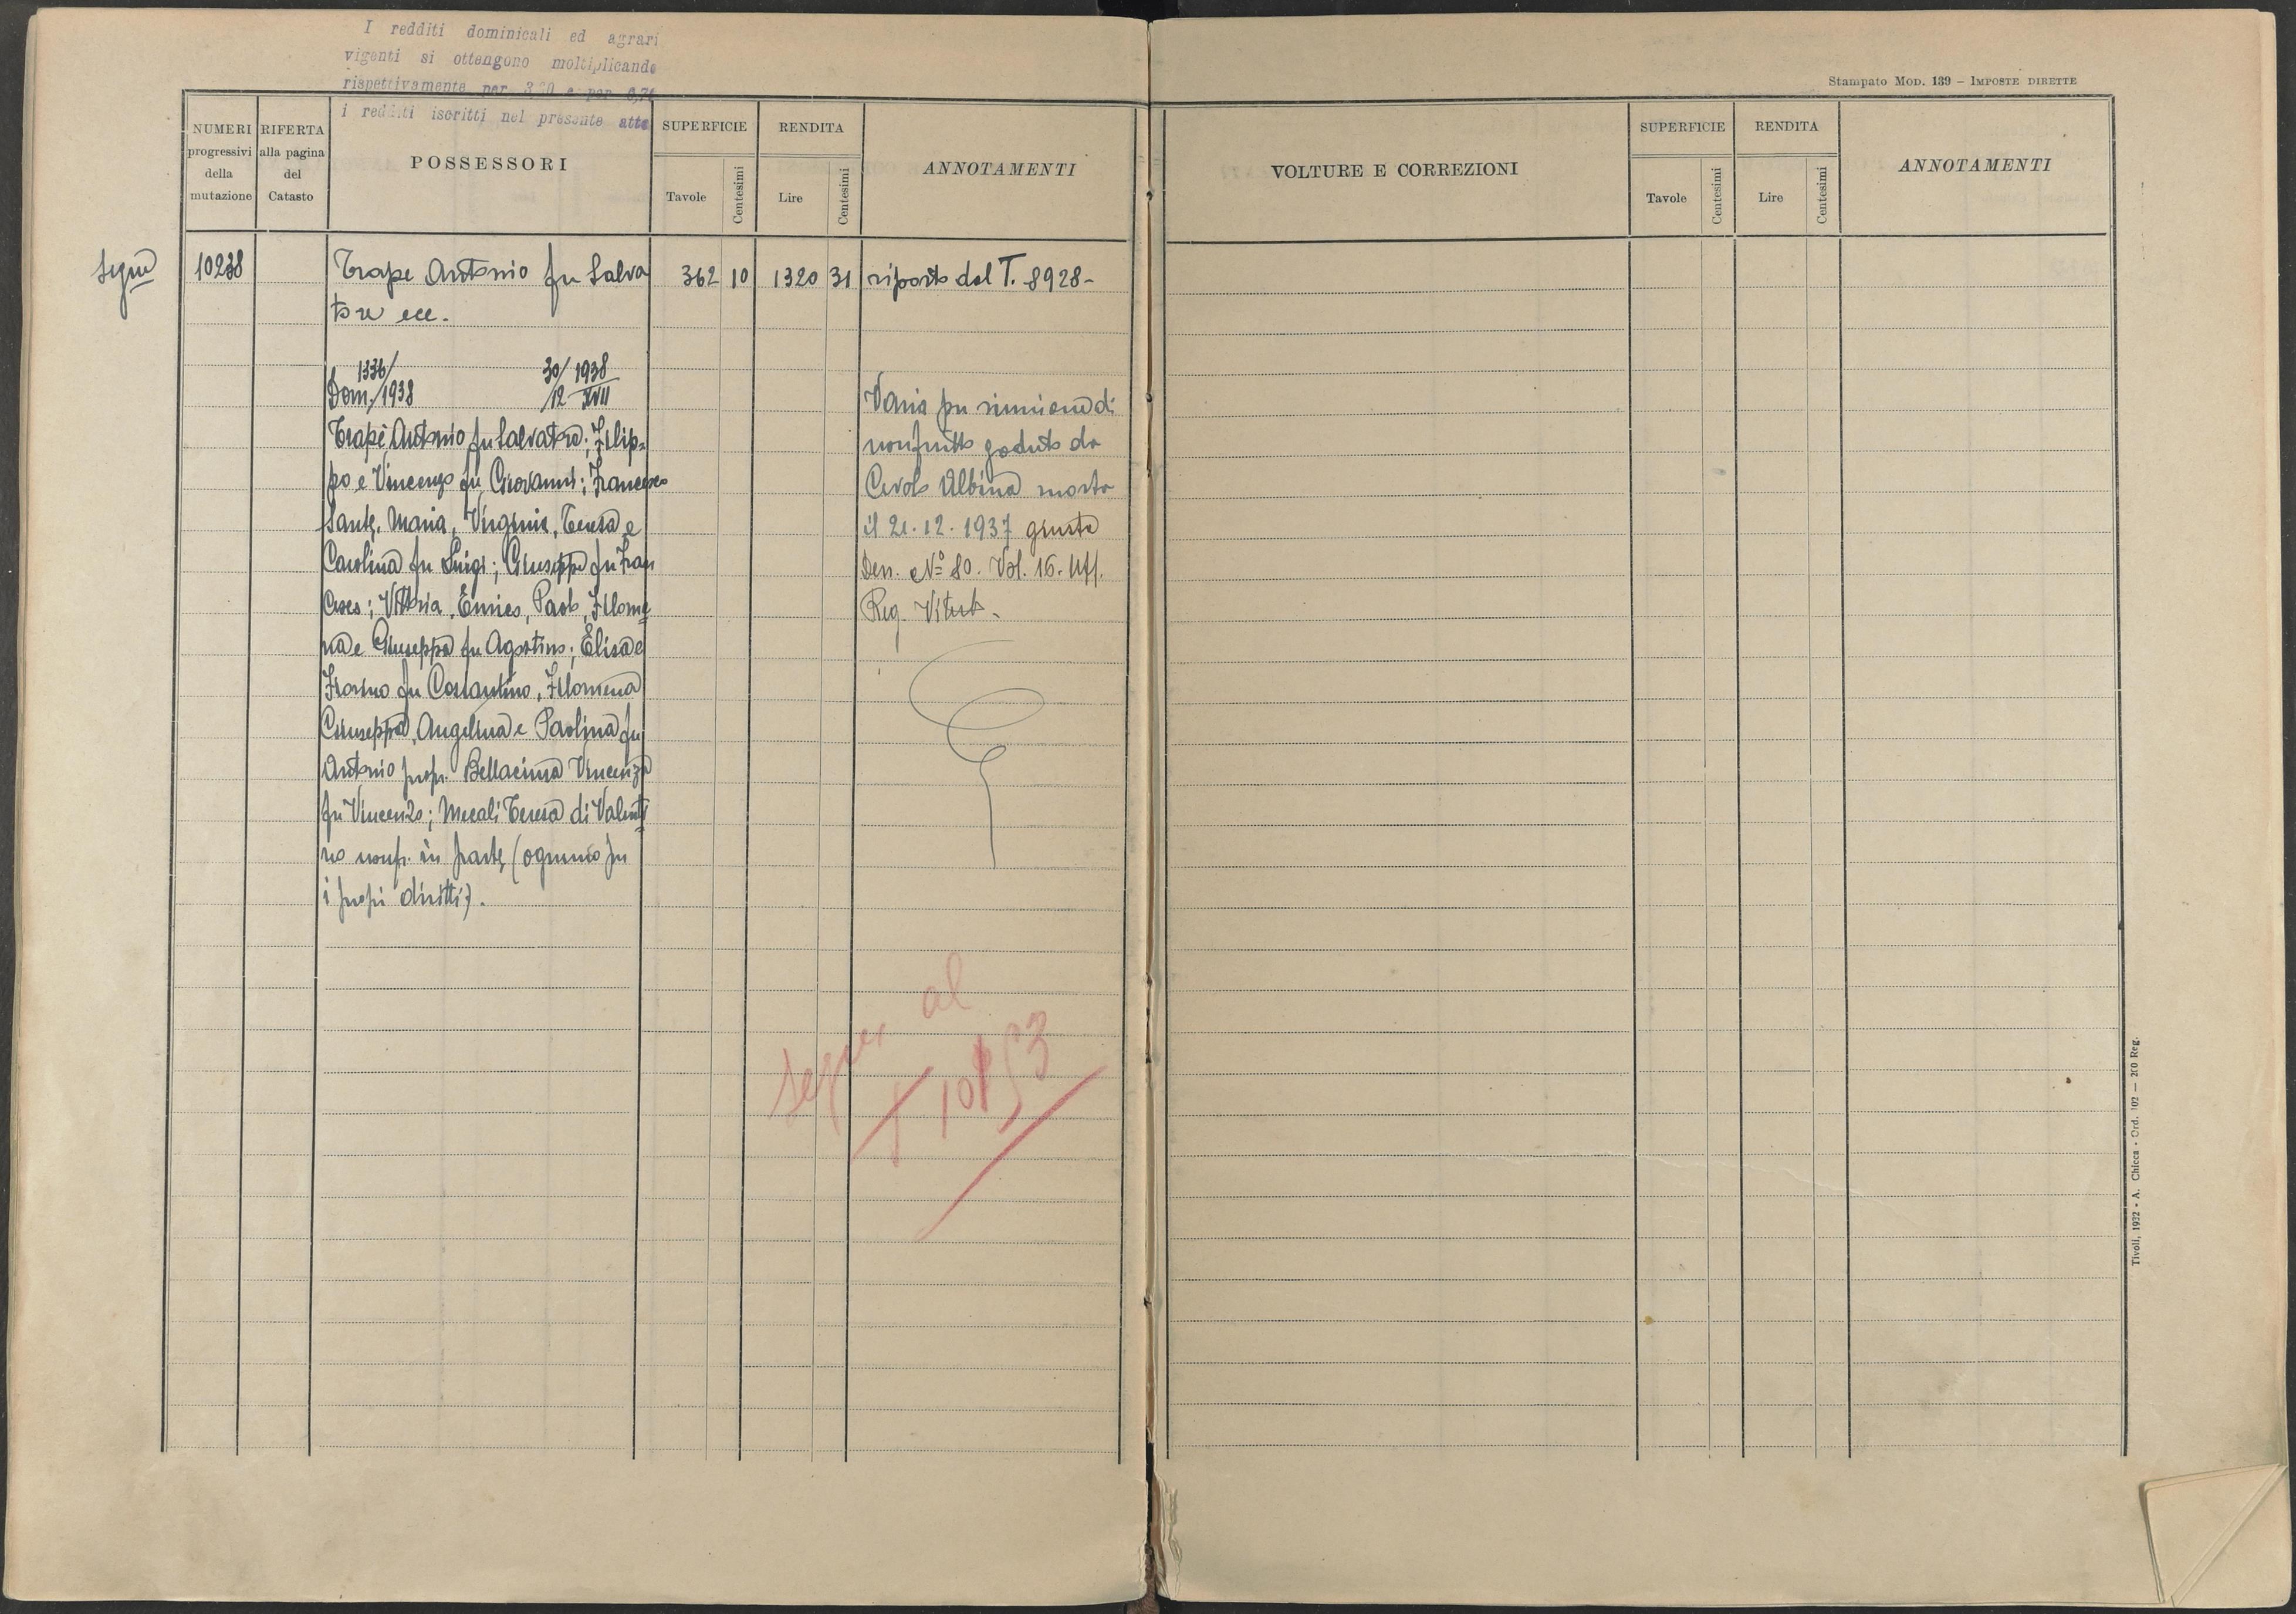 I redditi dominicali ed agrari
vigenti si ottengono moltiplicando
rispettivamente per 3,80 e per 6,74
i redditi iscritti nel presente atto
Stampato Mod. 139 – Imposte dirette
NUMERI progressivi della mutazione
RIFERTA alla pagina del Catasto
POSSESSORI
SUPERFICIE
Tavole
Centesimi
RENDITA
Lire
Centesimi
ANNOTAMENTI
VOLTURE E CORREZIONI
SUPERFICIE
Tavole
Centesimi
RENDITA
Lire
Centesimi
ANNOTAMENTI
segue 10238 Trapè Antonio fu Salva 362 10 1320 31 riporto dal T. 8928-
tore ecc.
1336/ 30/ 1938
Dom./1938 /12 XVII
Trapè Antonio fu Salvatore; Filip=
po e Vincenzo fu Giovanni; Francesco
Sante, Maria, Virginia, Teresa e
Carolina fu Luigi; Giuseppe fu Fran
cesco; Vittoria, Enrico, Paolo, Filome
na e Giuseppa fu Agostino; Elisa e
Fiorino fu Costantino, Filomena
Giuseppa, Angelina e Paolina fu
Antonio propr. Bellacima Vincenza
fu Vincenzo; Mecali Teresa di Valenti
no usufr. in parte (ognuno per
i propri diritti).
Varia per riunione di
usufrutto goduto da
Ceroli Albina morta
il 21.12.1937 giusta
Den. Nº 80. Vol. 16. Uff.
Reg. Viterbo-
segue al
T 10153
Tivoli, 1932 - A. Chicca - Ord. 102 — 200 Reg.